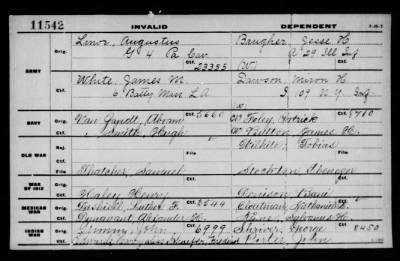 11542 INVALID DEPENDENT 3-1087
Orig. Linor, Augustus Baugher Jesse H
G 4 Pa Cav A 29 Ill Inf
Ctf. 23355
ARMY
Orig. White, James M. Dawson, Miron H
6 Batty Mass L A I 109 N.Y. Inf
Ctf.
NAVY Orig. Van Zandt, Abram 5660 Foley, Patrick 8710
Ctf. Smith Hugh Britton, James H.
OLD WAR Orig. White, Tobias
File File
Ctf. Thatcher, Samuel Stockton Ebenezer
WAR OF 1812 Orig.
Ctf. Haley Henry Denison
MEXICAN WAR Orig. Luther F. 2544 Cloutman, Nathaniel
Ctf. Donavant, Alexander H. Kane, Sylvanus H.
INDIAN WAR Orig. John 6999 Shriver, George 8450
Ctf. Porter John